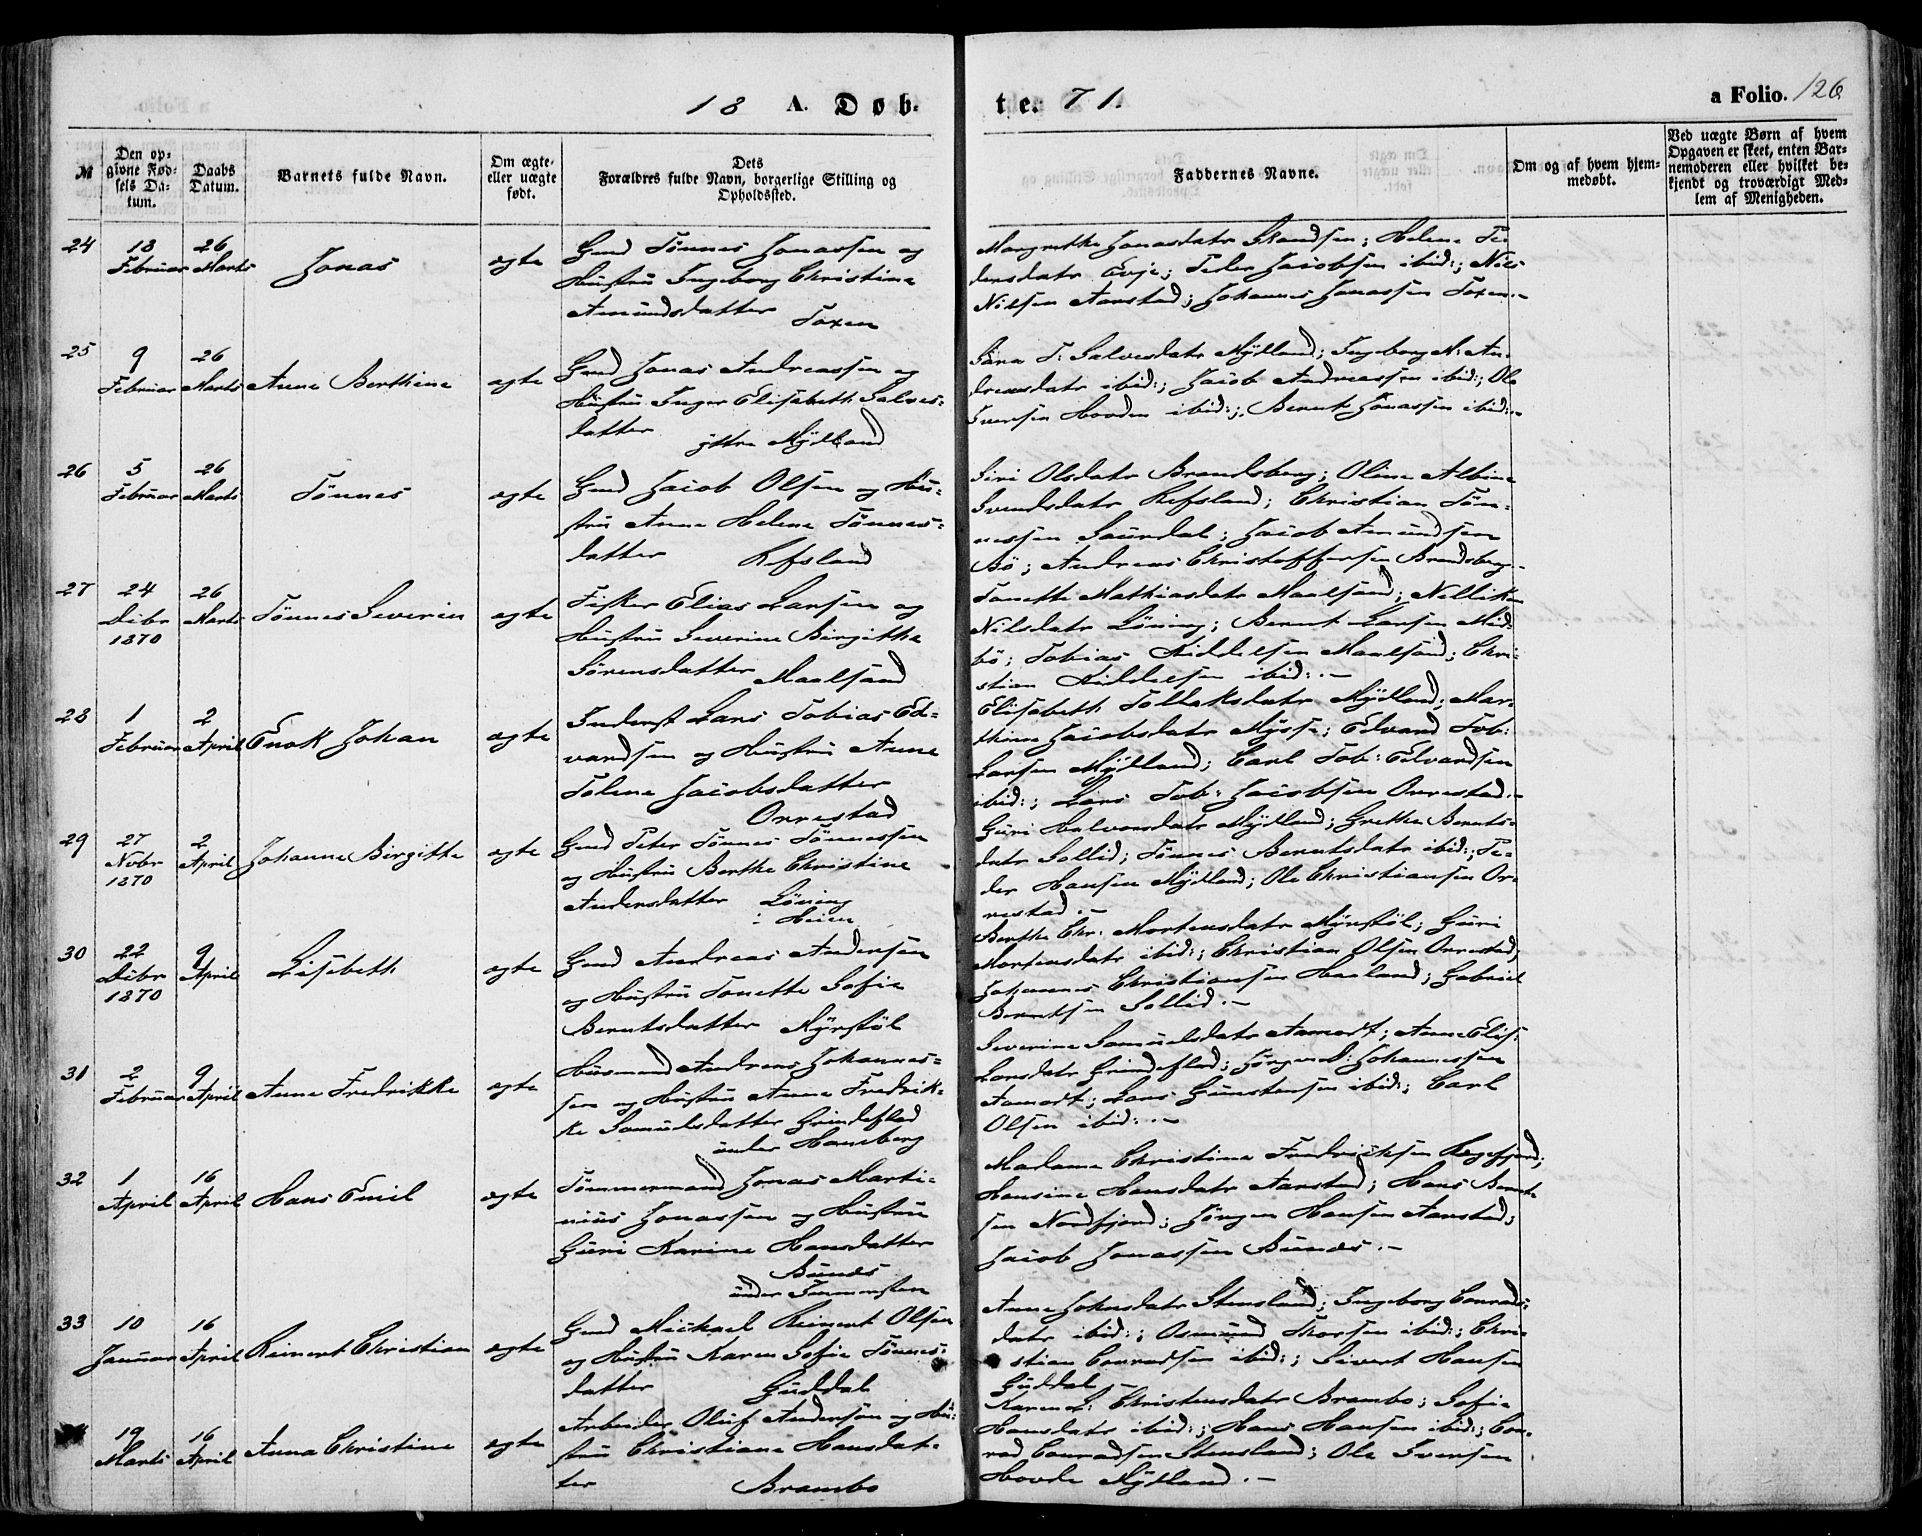 18 A. Døb-
te. 71.
a Folio. 126
№
Den op-
givne Fød-
sels Da-
tum.
Daabs
Datum.
Barnets fulde Navn.
Om ægte
eller uægte
født.
Dets
Forældres fulde Navn, borgerlige Stilling og
Opholdssted.
Faddernes Navne.
Om og af hvem hjem-
medøbt.
Ved uægte Børn af hvem
Opgaven er skeet, enten Bar-
nemoderen eller hvilket be-
kjendt og troværdigt Med-
lem af Menigheden.
24 18 Februar 26 Marts Jonas ægte
Gmd Tønnes Jonassen og
Hustru Ingeborg Christine
Amundsdatter Toxen
Margrethe Jonasdatr Skandsen; Helene Pe-
dersdatr Evje; Peder Jacobsen ibid:; Nils
Nilsen Aarstad; Johannes Jonassen Toxen.-
25 9 Februar 26 Marts Anne Berthine ægte
Gmd Jonas Andreassen og
Hustru Inger Elisabeth Salves-
datter yttre Mydland
Sara T: Salvesdatr Mydland; Ingeborg M: An-
dreasdatr ibid:; Jacob Andreassen ibid:; Ole
Iversen Hovden ibid:; Bernt Jonassen ibid:-
26 5 Februar 26 Marts Tønnes ægte
Gmd Jacob Olsen og Hu-
stru Anne Helene Tønnes-
datter Refsland
Siri Olsdatr Brandsberg; Oline Albine
Svendsdatr Refsland; Christian Tøn-
nessen Saurdal; Jacob Amundsen
Bø; Andreas Christoffersen Brandsberg-
27 24 Debr 1870 26 Marts Tønnes Severin ægte
Fisker Elias Larsen og
Hustru Severine Birgitte
Sørensdatter Maalsand
Tonette Mathiasdatr Maalsand; Nellike
Nilsdatr Løning; Bernt Larsen Mid-
bø; Tobias Kiddelsen Maalsand; Chri-
stian Kiddelsen ibid:.-
28 1 Februar 2 April Enok Johan ægte
Inderst Lars Tobias Ed-
vardsen og Hustru Anne
Tolene Jacobsdatter
Orrestad
Elisabeth Tollaksdatr Mydland; Mar-
thine Jacobsdatr Mysse; Edvard Tob:
Larsen Mydland; Carl Tob: Edvardsen
ibid:; Lars Tob: Jacobsen Orrestad.-
29 27 Nobr 1870 2 April Johanne Birgitte ægte
Gmd Peter Tønnes Tønnessen
og Hustru Berthe Christine
Andersdatter Løning
i Heien
Guri Halvorsdatr Mydland; Grethe Bernts-
datr Sollid; Tønnes Berntsdatr ibid:; Pe-
der Hansen Mydland; Ole Christiansen Or-
restad.-
30 22 Debr 1870 9 April Lisebeth ægte
Gmd Andreas Andersen
og Hustru Tonette Sofie
Berntsdatter Myrstøl
Berthe Chr: Mortensdatr Myrstøl; Guri
Mortensdatr ibid:; Christian Olsen Orrestad;
Johannes Christiansen Haaland; Gabriel
Berntsen Sollid.-
31 2 Februar 9 April Anne Fredrikke ægte
Husmand Andreas Johannes-
sen og Hustru Anne Fredrik-
ke Samuelsdatter Grindeflad
under Haneberg
Severine Samuelsdatr Aamodt; Anne Elis:
Larsdatr Grindeflad; Jørgen D: Johannessen
Aamodt; Lars Gunstensen ibid:; Carl
Olsen ibid:.-
32 1 April 16 April Hans Emil ægte
Tømmermand Jonas Marti-
nius Jonassen og Hustru
Guri Karine Hansdatter
Bunes
under
Madame Christine Fredricksen Regefjord;
Hansine Hansdatr Aarstad; Hans Bernt-
sen Nordfjord; Jørgen Hansen Aarstad;
Jacob Jonassen Bunes.-
33 10 Januar 16 April Reinert Christian ægte
Gmd Michael Reinert Olsen
og Hustru Karen Sofie Tønnes-
datter Guddal
Anne Johnsdatr Stensland; Ingeborg Conrads-
datr ibid:; Osmund Thorsen ibid:; Chri-
stian Conradsen ibid:; Sivert Hansen
Guddal.-
19 Marts 16 April Anna Christine ægte
Arbeider Oluf Andersen og Hu-
stru Christiane Hansdat-
ter Brambo
Karen L: Christensdatr Brambo; Sofie
Hansdatr ibid:; Hans Hansen ibid:; Con-
rad Conradsen Stensland; Ole Iversen
Hovde Mydland.-